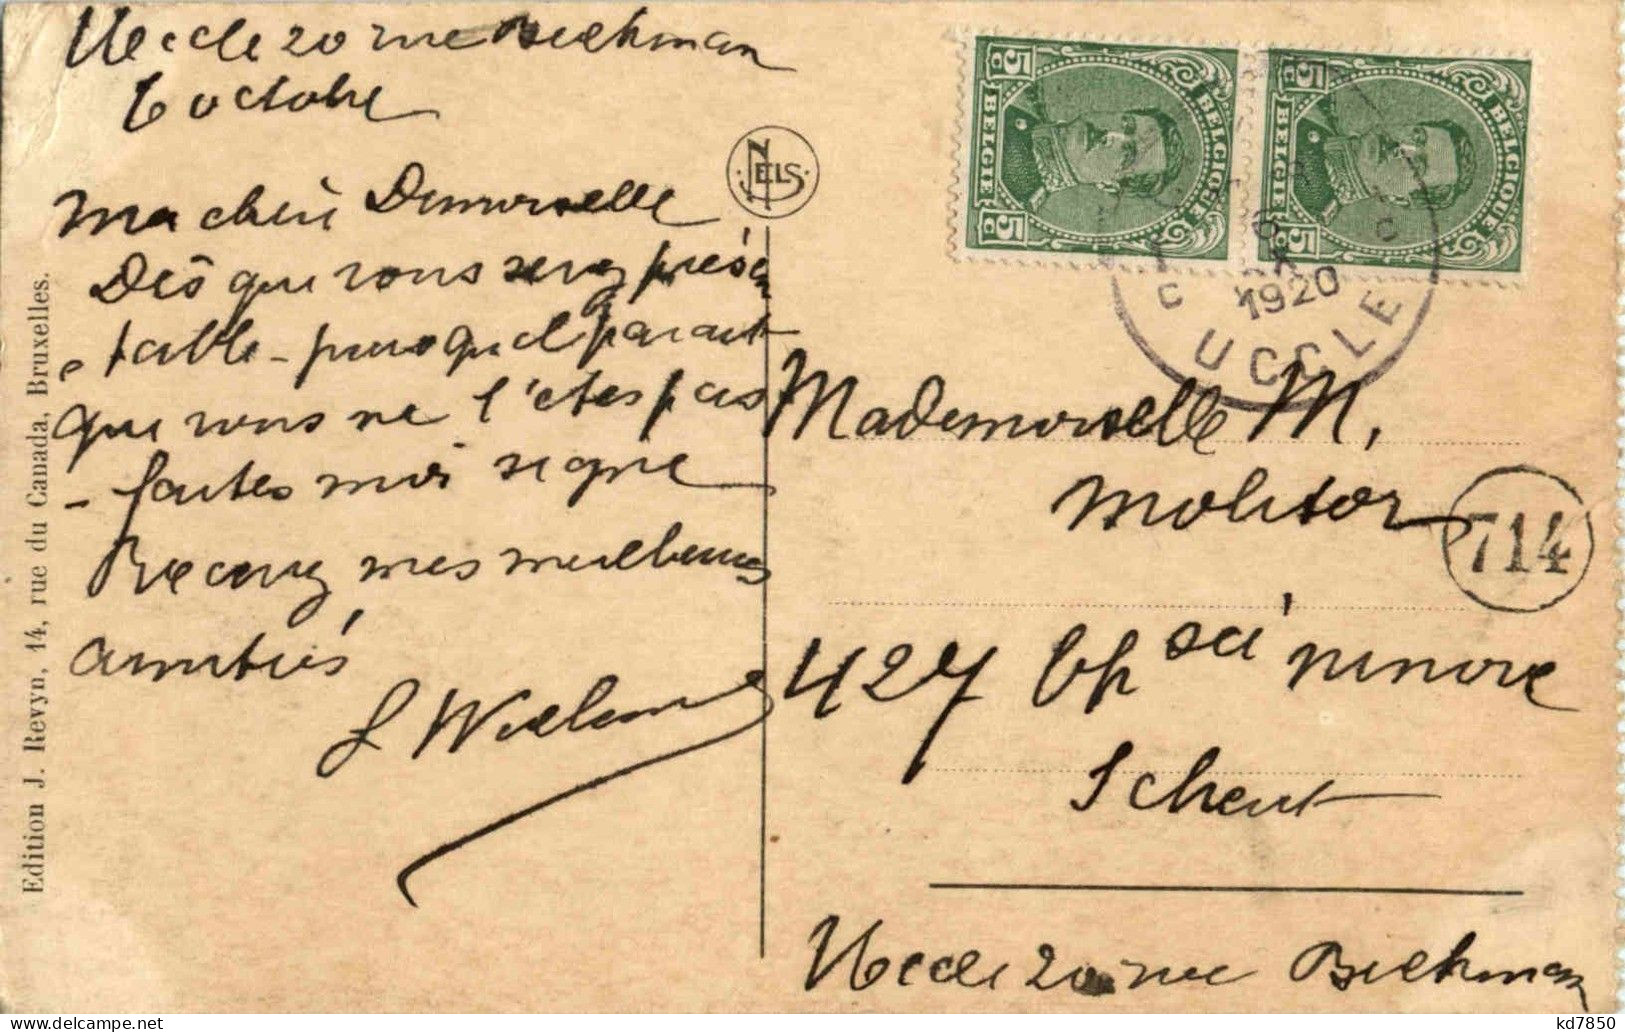 Uccle 20 rue Beeckman
6 octobre
Ma chère Demoiselle
Dès que vous serez présen
table - puisqu'il parait
que vous ne l'êtes pas
- faites moi signe
Recevez mes meilleures
amitiés
NELS
Edition J. Revyn, 14, rue du Canada, Bruxelles.
5 c BELGIE BELGIQUE 5 c
5 c BELGIE BELGIQUE 5 c
1920
UCCLE
Mademoiselle M.
Molitor
714
427 Chssée Ninove
Scheut
Uccle 20 rue Beeckman
kd7850